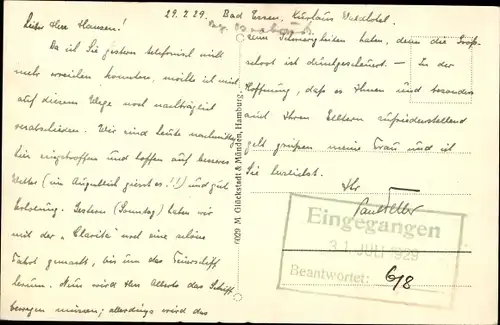 29.7.29. Bad Essen, Kurhaus Waldhotel.
Bez. Osnabrück
Lieber Herr Hansen!
Da ich Sie gestern telefonisch nicht
mehr erreichen konnten, möchte ich mich
auf diesem Wege noch nachträglich
verabschieden. Wir sind heute nachmittag
hier eingetroffen und hoffen auf besseres
Wetter (im Augenblick giesst es!!) und gute
Erholung. Gestern (Sonntag) haben wir
mit der „Clarita" noch eine schöne
Fahrt gemacht, bis um das Feuerschiff
herum. Nun wird Alberts das Schiff
bewegen müssen; allerdings wird das
kein Schwierigkeiten haben, denn die Groß-
schot ist durchgescheuert. — In der
Hoffnung, daß es Ihnen und besonders
auch Ihren Eltern zufriedenstellend
geht grüßen meine Frau und ich
Sie herzlichst.
Ihr
6029 M. Glückstadt & Münden, Hamburg.
Eingegangen
31. JULI 1929
Beantwortet: 6/8